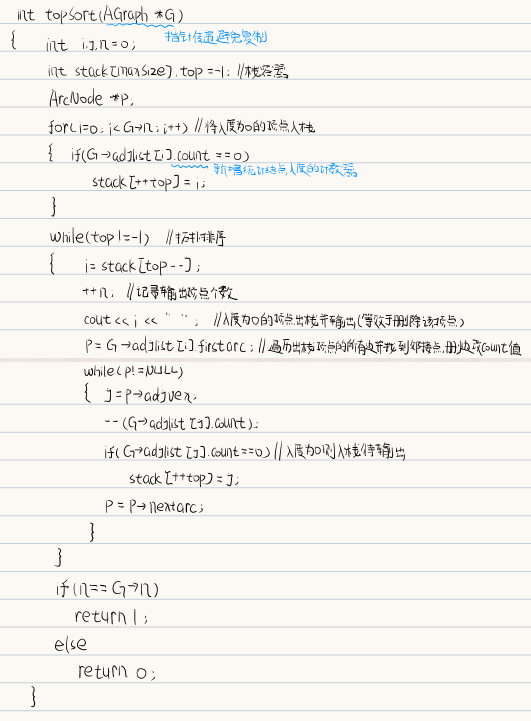 int topSort(AGraph *G)
{ int i,j,n=0; 指针传递避免复制
int stack[maxSize],top=-1; //栈容器
ArcNode *p;
for(i=0;i<G→n;i++) //将入度为0的顶点入栈
{ if(G→adjlist[i].count ==0)
新增统计结点入度的计数器
stack[++top]=i;
}
while(top!=-1) //拓扑排序
{ i=stack[top--];
++n; //记录输出顶点个数
cout<<i<<" "; //入度为0的顶点出栈并输出(等效于删除该顶点)
p=G→adjlist[i].firstarc; //遍历出栈顶点的所有边并找到邻接点,删边改count值
while(p!=NULL)
{ j=p→adjvex;
--(G→adjlist[j].count);
if(G→adjlist[j].count==0) //入度为0则入栈待输出
stack[++top]=j;
p=p→nextarc;
}
}
if(n==G→n)
return 1;
else
return 0;
}